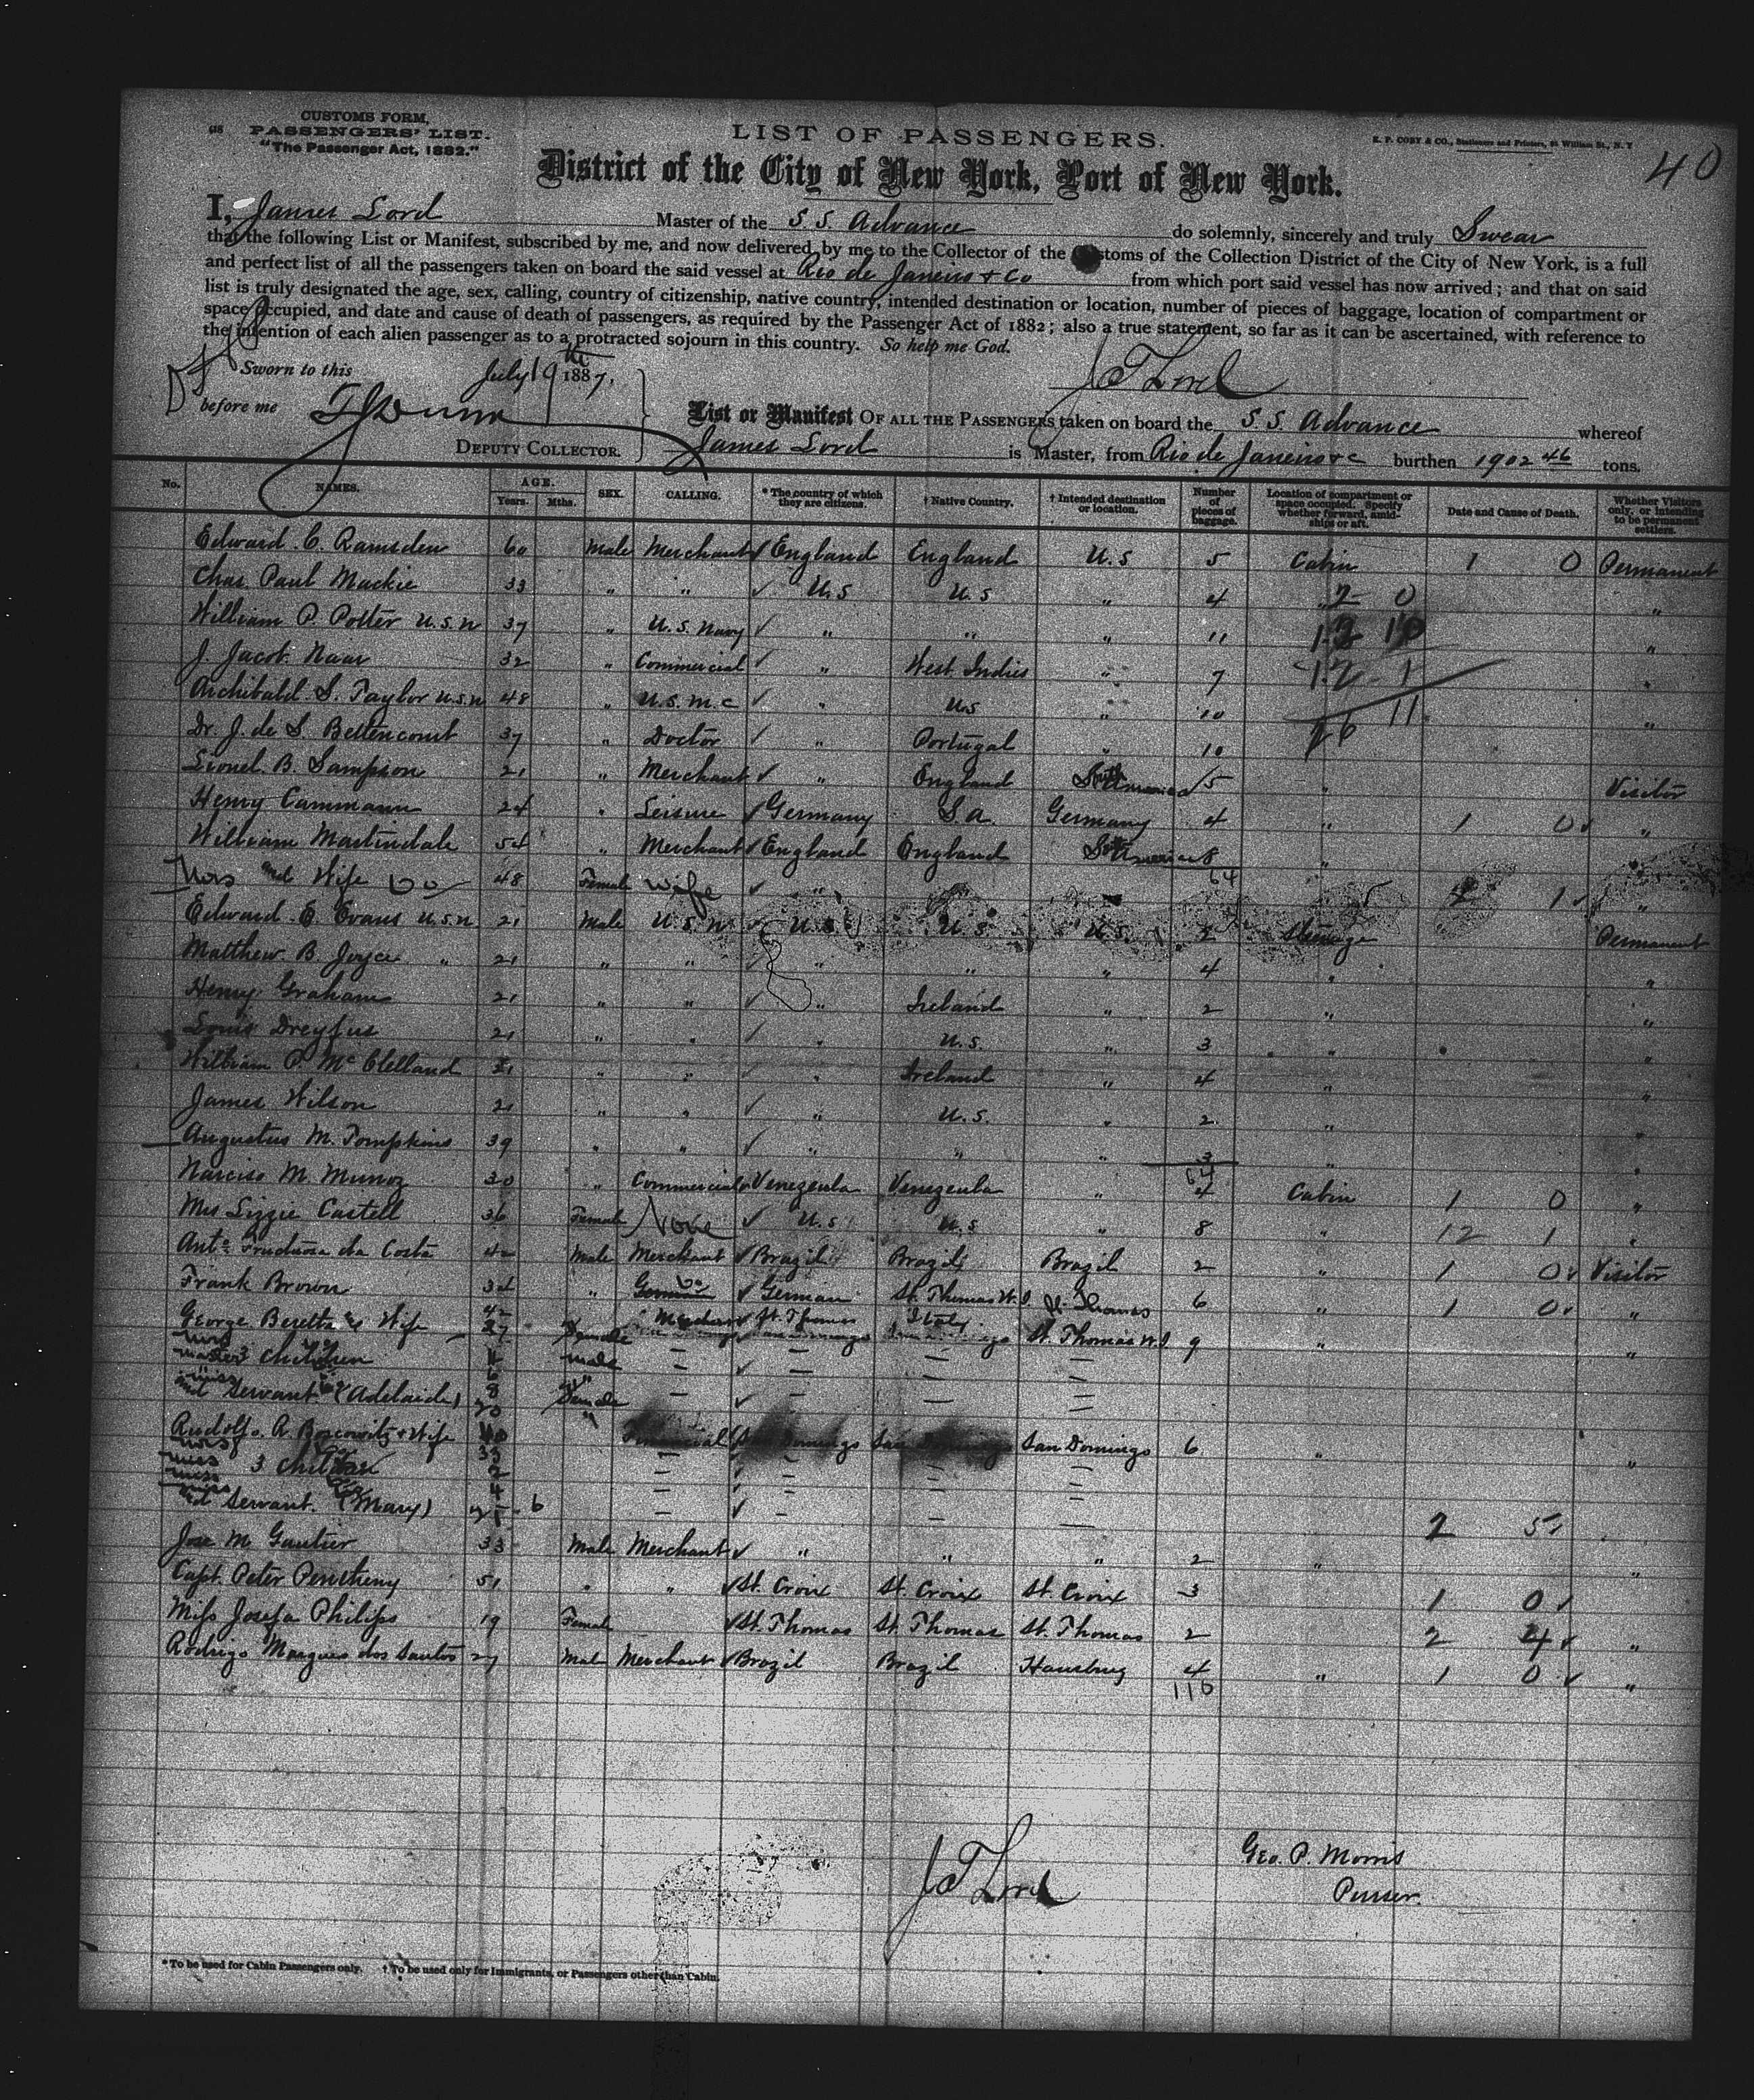 CUSTOMS FORM,
PASSENGERS' LIST.
"The Passenger Act, 1882."
LIST OF PASSENGERS.
E. P. COBY & CO., Stationers and Printers, William St., N. Y
40
District of the City of New York, Port of New York.
I, James Lord Master of the S. S. Advance do solemnly, sincerely and truly Swear
that the following List or Manifest, subscribed by me, and now delivered by me to the Collector of the Customs of the Collection District of the City of New York, is a full
and perfect list of all the passengers taken on board the said vessel at Rio de Janeiro + Co from which port said vessel has now arrived; and that on said
list is truly designated the age, sex, calling, country of citizenship, native country, intended destination or location, number of pieces of baggage, location of compartment or
space occupied, and date and cause of death of passengers, as required by the Passenger Act of 1882; also a true statement, so far as it can be ascertained, with reference to
the intention of each alien passenger as to a protracted sojourn in this country. So help me God.
Sworn to this July 19th 1887. J T Lord
before me TJ Dunn
DEPUTY COLLECTOR.
List or Manifest OF ALL THE PASSENGERS taken on board the S. S. Advance whereof
James Lord is Master, from Rio de Janeiro + c burthen 1902 46 tons.
No. NAMES. AGE. Years. Mths. SEX. CALLING. * The country of which they are citizens. † Native Country. † Intended destination or location. Number of pieces of baggage. Location of compartment or space occupied. Specify whether forward, amidships or aft. Date and Cause of Death. Whether Visitors only, or intending to be permanent settlers.
Edward C. Ramsden 60 Male Merchant ✓ England England U.S 5 Cabin 1 0 Permanent
Chas. Paul Mackie 33 " " ✓ U.S U.S " 4 " 2 0 "
William P. Potter U.S.N 37 " U.S. Navy ✓ " " " 11 "
J. Jacob Naar 32 " Commercial ✓ " West Indies " 7 12 1 "
Archibald S. Taylor U.S.N 48 " U.S.M.C ✓ " U.S " 10 26 11 "
Dr. J. de S. Bettencourt 37 " Doctor ✓ " Portugal " 10 "
Lionel B. Sampson 21 " Merchant ✓ " England South America 5 " Visitor
Henry Cammann 24 " Leisure ✓ Germany S.A. Germany 4 " 1 0 ✓ "
William Martindale 54 " Merchant ✓ England England South America 8 "
Mrs and Wife Do 48 Female Wife ✓ " 64 1 ✓ "
Edward E. Evans U.S.N 21 Male U.S.N ✓ U.S U.S U.S. 2 Steerage Permanent
Matthew B. Joyce " 21 " " ✓ " " " 4 " "
Henry Graham 21 " " ✓ " Ireland " 2 " "
Louis Dreyfus 21 " " ✓ " U.S. " 3 " "
William P. McClelland 21 " " ✓ " Ireland " 4 " "
James Wilson 21 " " ✓ " U.S. " 2 " "
Augustus M. Tompkins 39 " " ✓ " " " 3 " "
Narciso M. Munoz 30 " Commercial ✓ Venezuela Venezuela " 4 Cabin 1 0 "
Mrs Lizzie Castell 36 Female None ✓ U.S U.S " 8 " 12 1 "
Anto. da Costa 42 Male Merchant ✓ Brazil Brazil Brazil 2 " 1 0 ✓ Visitor
Frank Brown 34 " Do ✓ German St. Thomas W.I St. Thomas 6 " 1 0 ✓ "
George Beretta & Wife 42 27 Female Merchant ✓ St. Thomas Italy St. Thomas W.I 9 " "
Mrs
Master 3 children 11 6 Male — ✓ — — —
Miss
and Servant (Adelaide) 8 20 Female — ✓ — — —
Rudolfo A. Boscowitz + Wife 40 33 San Domingo San Domingo 6 " "
Mrs
Miss 3 children 2 4 — ✓ — — —
Miss
and Servant (Mary) 25 6 — ✓ — — — 2 5 ✓
Jose M. Gautier 33 Male Merchant ✓ " " " 2 " "
Capt. Peter Pentheny 51 " " ✓ St. Croix St. Croix St. Croix 3 1 0 ✓
Miss Josefa Philips 19 Female ✓ St. Thomas St. Thomas St. Thomas 2 2 4 ✓ "
Rodrigo Marques dos Santos 27 Male Merchant ✓ Brazil Brazil Hamburg 4 " 1 0 ✓ "
116
J T Lord
Geo. P. Morris
Purser.
* To be used for Cabin Passengers only. † To be used only for Immigrants, or Passengers other than Cabin.